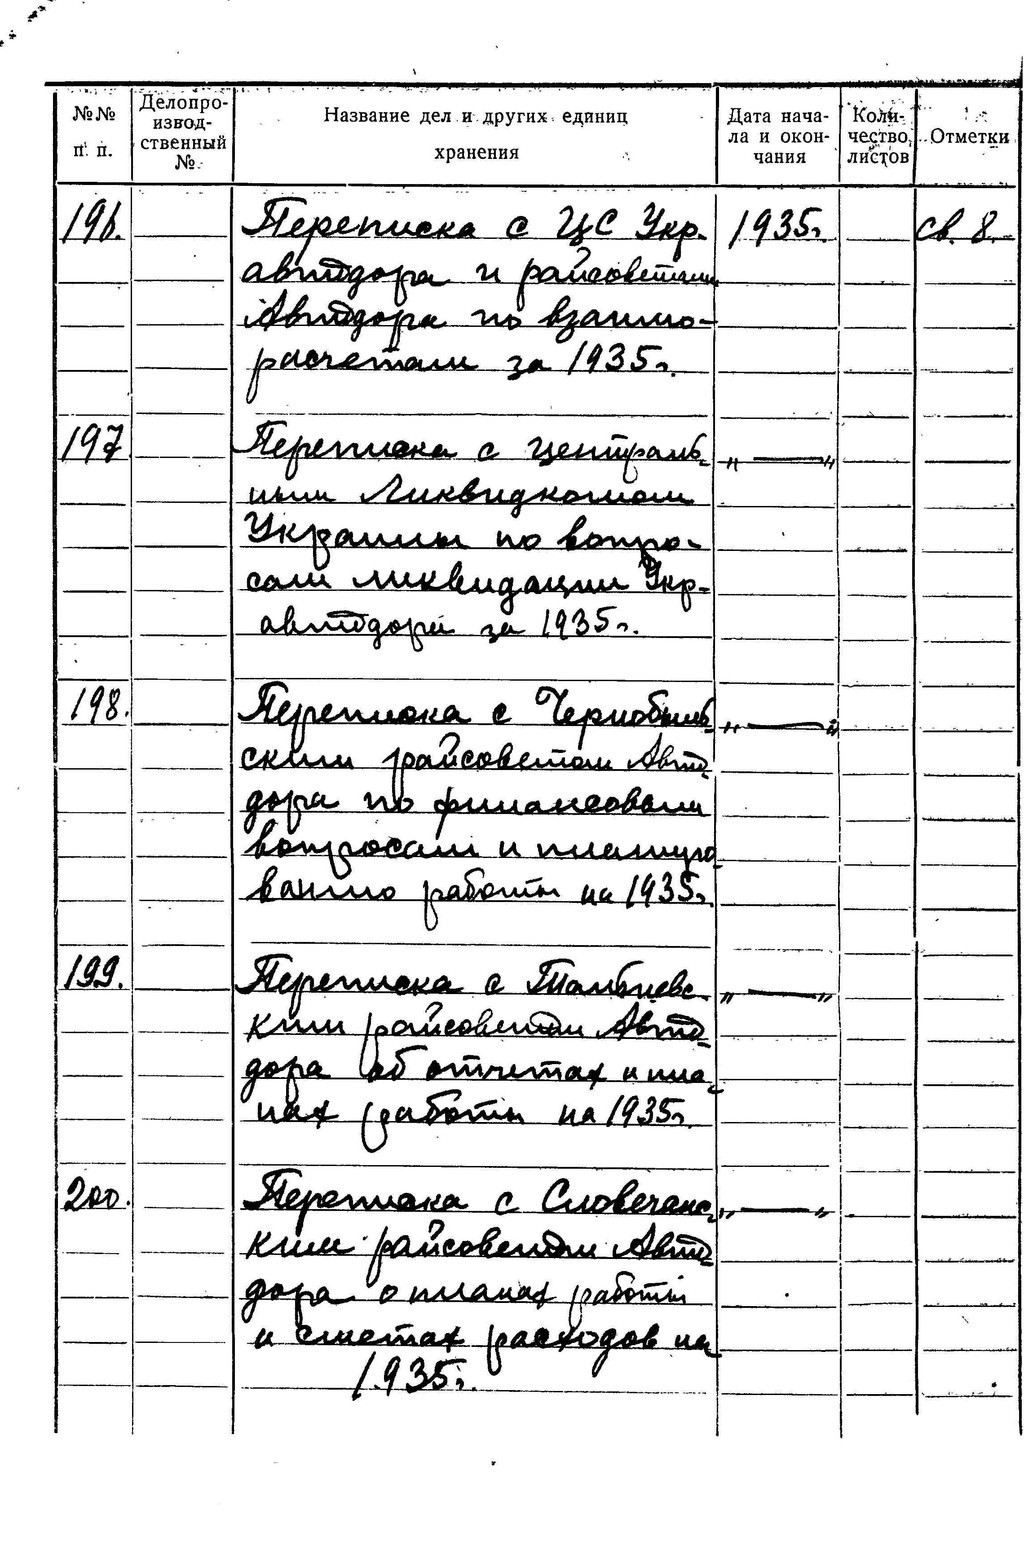 №№ п. п.
Делопро-
извод-
ственный
№
Название дел и других единиц
хранения
Дата нача-
ла и окон-
чания
Коли-
чество
листов
Отметки
196. Переписка с ЦС Укр- 1935г. св. 8.
автодора и райсоветами
Автодора по взаимо-
расчетам за 1935г.
197 Переписка с Централь- „ — "
ным Ликвидкомом
Украины по вопро-
сам ликвидации Укр-
автодора за 1935г.
198. Переписка с Чернобыль- „ — "
ским райсоветом Авто-
дора по финансовым
вопросам и планиро-
ванию работы на 1935г.
199. Переписка с „ — "
ким райсоветом Авто-
дора об отчетах и пла-
нах работы на 1935г.
200. Переписка с Словечанс- „ — "
ким райсоветом Авто-
дора о планах работы
и сметах расходов на
1935г.